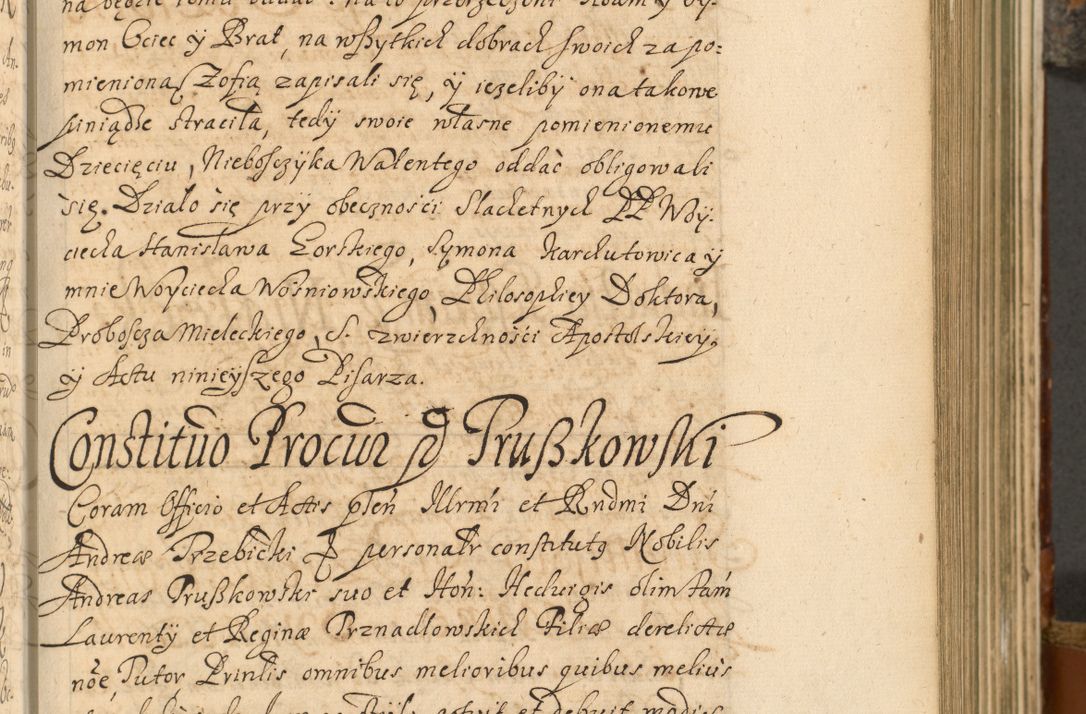 na będzie temu oddać. na to przerzeczoni Adam y Sy-
mon Ociec y Brat, na wßytkich dobrach swoich za po:
mienioną Zofią zapisali się, y ieżeliby ona takowe
piniądze straciła, tedy swoie własne pomienionemu
Dziecięciu, Nieboszczyka Walentego oddać obligowali
się. Działo się przy obecznosci Slachetnych PP Woy:
ciecha Stanisława Gorskiego, Symona Karchutowica y
mnie Woyciecha Wośniowskiego Philosophiey Doktora,
Proboszcza Mieleckiego, S. zwierzchności Apostolskiey,
y Actu ninieyszego Pisarza.
Constituo Procur p Prußkowski
Coram Officio et Actis pleń Illrmi et Rndmi Dni
Andreæ Trzebicki personalr constitutq Nobilis
Andreas Prußkowski suo et Hoń: Heduigis olim fam
Laurentÿ et Reginæ Prznadlowskich Filiæ derelictæ
nōe, Tutor Prinlis omnibus melioribus quibus melius